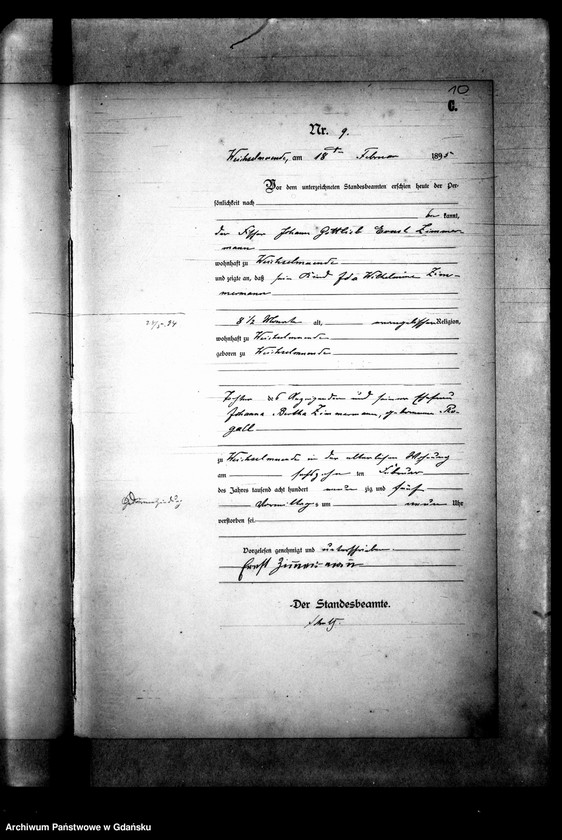 10
C.
Nr. 9.
Weichselmuende, am 18ten Februar 1895
Vor dem unterzeichneten Standesbeamten erschien heute der Per-
sönlichkeit nach
be kannt,
der Fischer Johann Gottlieb Ernst Zimmer-
mann
wohnhaft zu Weichselmuende
und zeigte an, daß sein Kind Ida Wilhelmine Zim-
mermann
8 1/2 Monate alt, evangelischer Religion,
wohnhaft zu Weichselmuende
geboren zu Weichselmuende
Tochter des Anzeigenden und seiner Ehefrau
Johanna Bertha Zimmermann, geborenen Ro-
gall
zu Weichselmuende in der elterlichen Wohnung
am sechszehn ten Februar
des Jahres tausend acht hundert neun zig und fünf
Vormittags um neun Uhr
verstorben sei.
Vorgelesen, genehmigt und unterschrieben
Ernst Zimmermann
Der Standesbeamte.
Archiwum Państwowe w Gdańsku